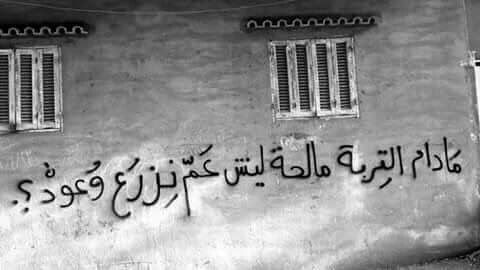 مَادام التِربة مالحة ليش عَمّ نِزرَع وُعودْ؟.